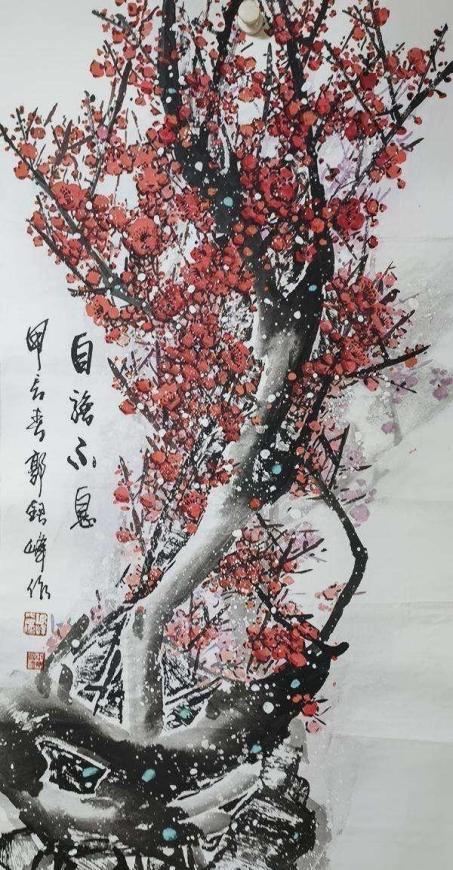 自强不息
甲辰春郭銀峰作